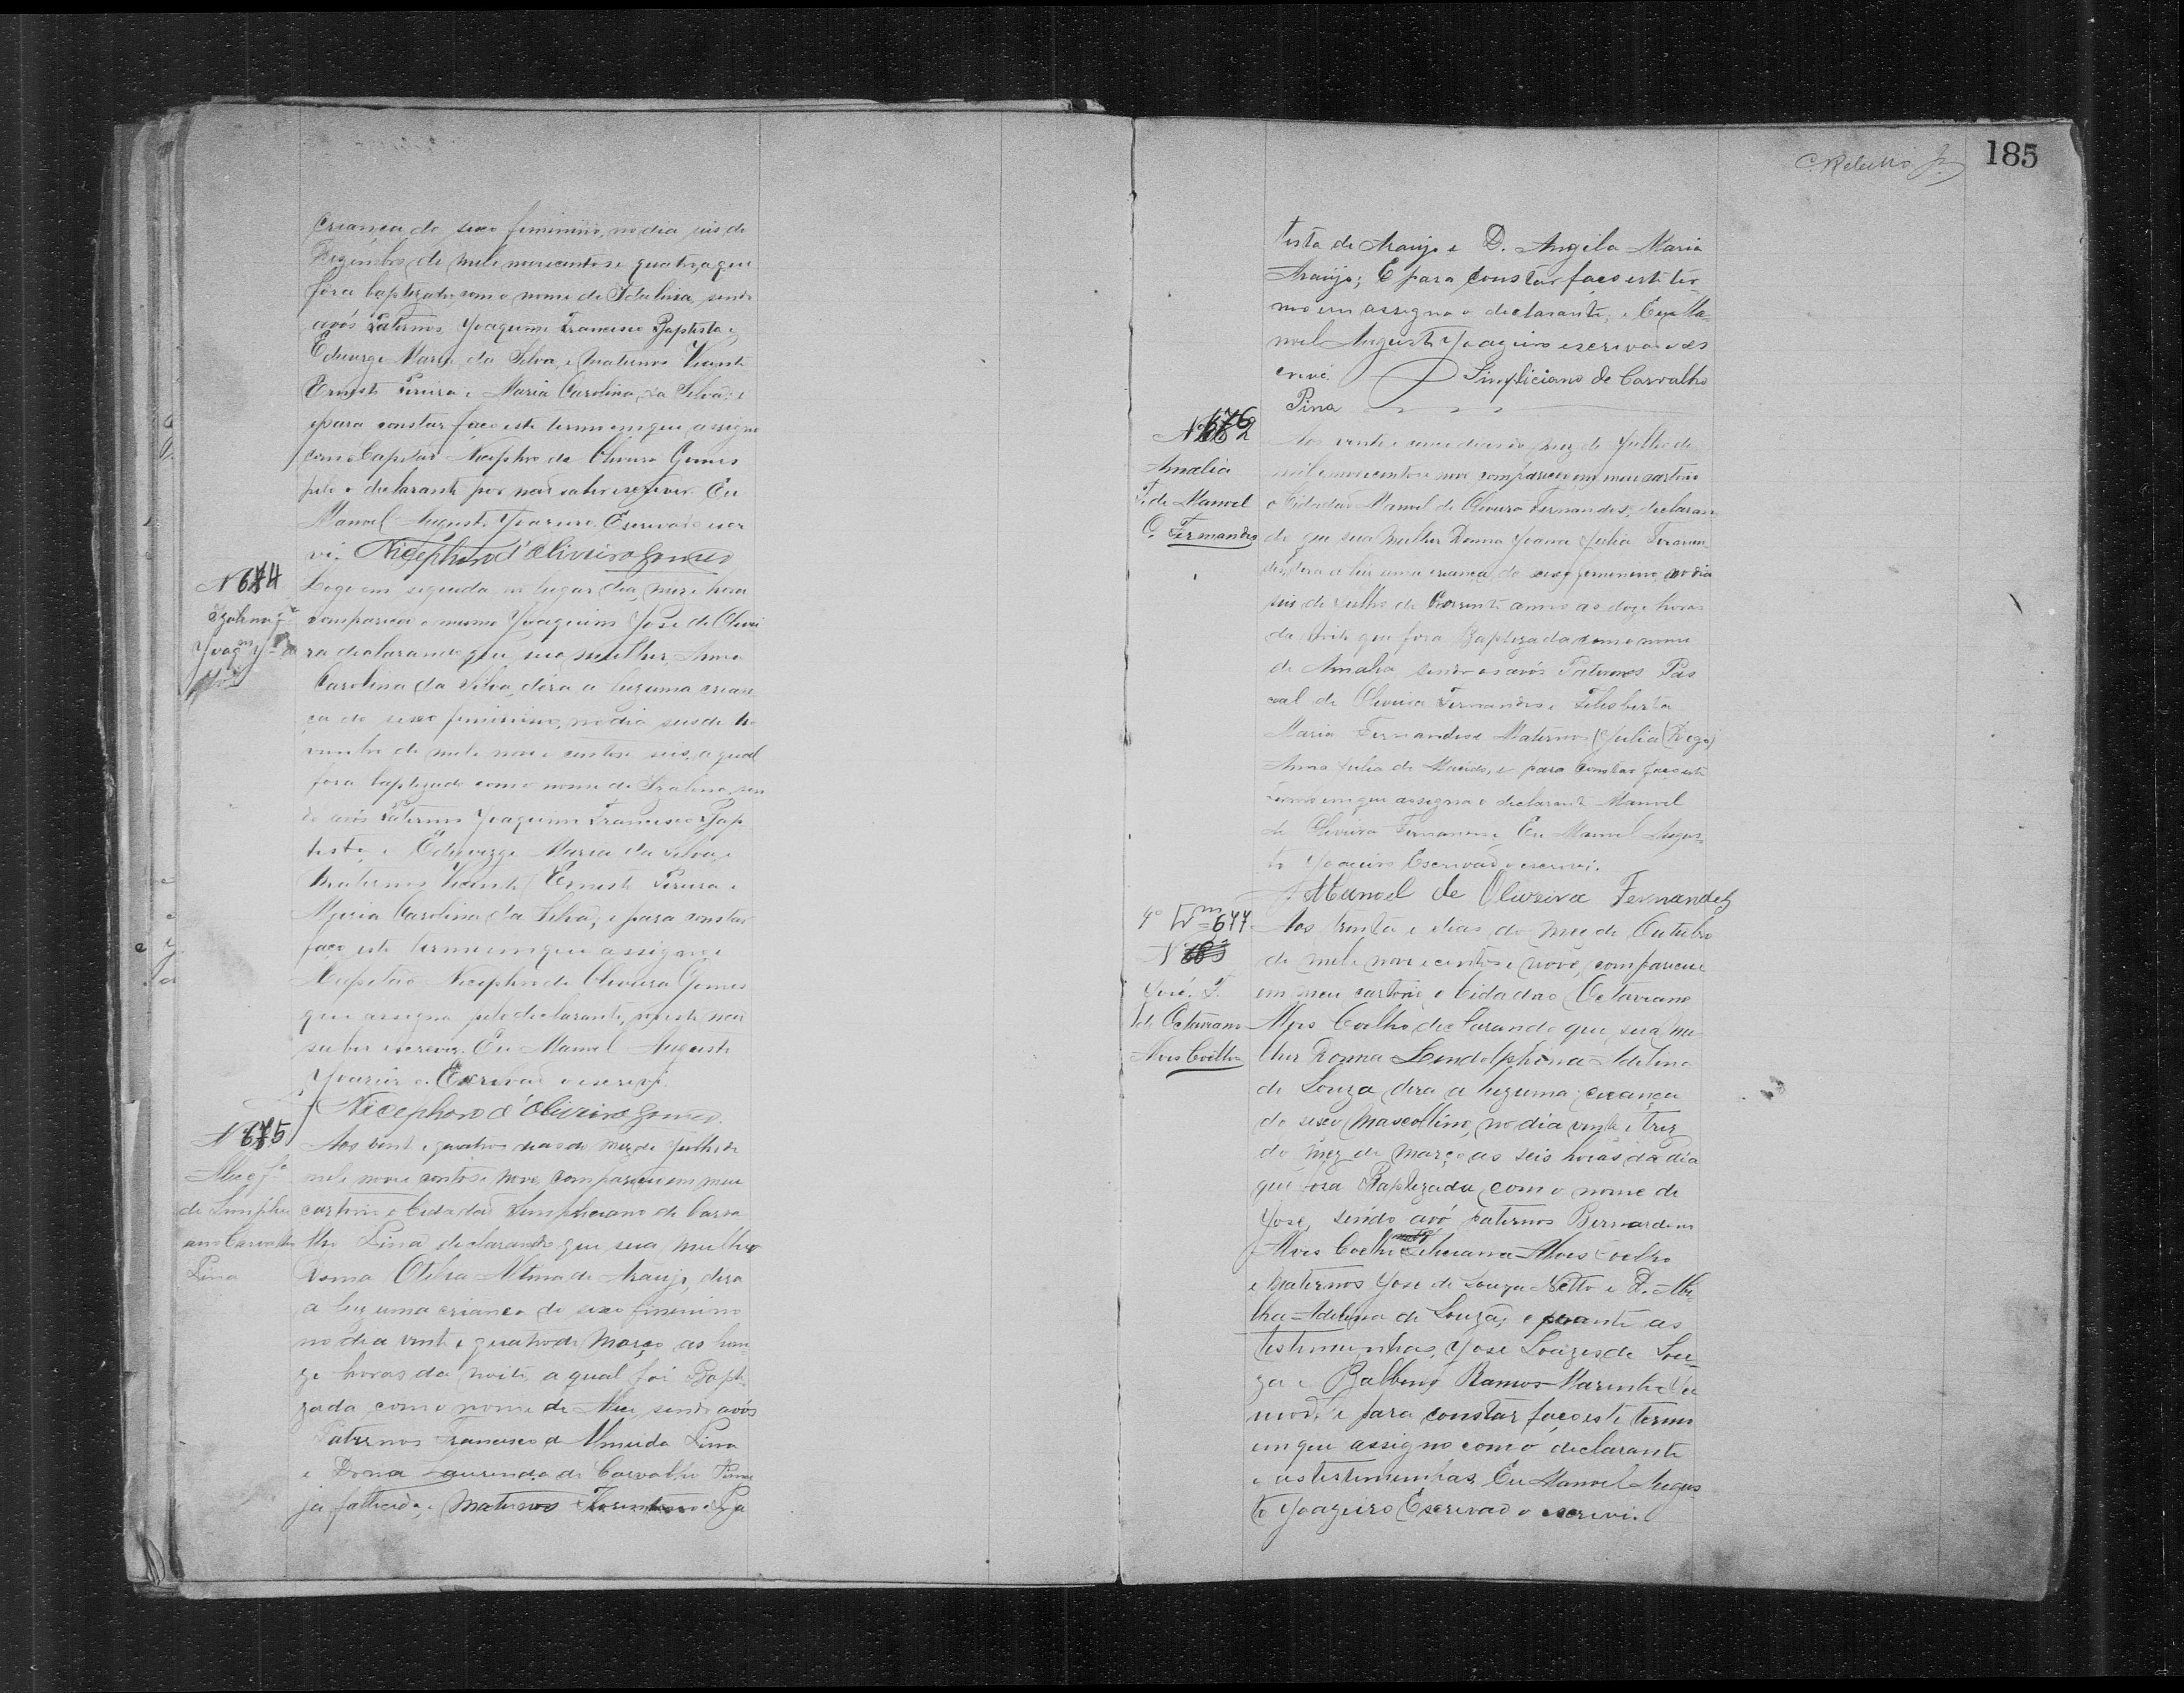 criança do sexo feminino, no dia seis de
Dezembro de mil e novecentos e quatro, a que
fôra baptizada com o nome de Idalina, sendo
avós Paternos Joaquim Francisco Baptista e
Eduvirge Maria da Silva, e Maternos Vicente
Ernesto Pereira e Maria Carolina da Silva; e
e para constar faço este termo em que assigna
com o Capitão Nicephro de Oliveira Gomes
pelo o declarante por não saber escrever. Eu
Manoel Augusto Joazeiro Escrivão o escr
vi. Nicéphoro d'Oliveira Gomes
N 674
Logo em seguida no lugar dia, mez e hora
compareceu o mesmo Joaquim José de Olivei
ra declarando que sua mulher Anna
Carolina da Silva, déra a luz uma crian
ça do sexo feminino, no dia seis de
de mil e nove centos e seis, a qual
fora baptizada com o nome de Izalina, sen
do avós Paternos Joaquim Francisco Bap
tista e Eduvirge Maria da Silva, e
Maternos Vicente Ernesto Pereira e
Maria Carolina da Silva; e para constar
faço este termo em que assigna o
Capitão Nicephro de Oliveira Gomes
que assigna pelo declarante, neste não
saber escrever. Eu Manoel Augusto
Joazeiro o Escrivão o escrevi.
Nicephoro d'Oliveira Gomes.
N 675
de Simplici
ano Carvalho
Pina
Aos vinte e quatro dias do mez de Julho de
mil e nove centos e nove, compareceu em meu
cartorio o Cidadão Simpliciano de Carva
lho Pina declarando que sua mulher
Dona Otilia Altina de Araujo, dera
a luz uma criança do sexo feminino
no dia vinte e quatro de Março, as hon
ze horas da noite, a qual foi Bapti
zada com o nome de sendo avós
Paternos Francisco de Almeida Pina
e Dona Laurinda de Carvalho Pina
já fallecida, e Maternos Ba
185
tista de Araujo e D. Angela Maria
Araujo; E para constar faço este ter
mo em assigna o declarante, e Eu Ma
noel Augusto Joazeiro escrivão o es
crevi. Simpliciano de Carvalho
Pina
N 676
Amalia
F. de Manoel
O. Fernandes
Aos vinte e dias do mez de Julho de
mil e novecentos e nove compareceu em meu cartorio
o Cidadão Manoel de Oliveira Fernandes, declaran
do que sua Mulher Donna Joana Julia Fernan
des, dera a luz uma criança do sexo femenino, no dia
seis de Julho do Corrente anno as doze horas
da noite que fora Baptizada com o nome
de Amalia sendo os avós Paternos Pas
coal de Oliveira Fernandes e Felisberta
Maria Fernandes e Maternos (Julia (Digo)
Anna Julia de Macedo, e para constar faço este
termo em que assigna o declarante Manoel
de Oliveira Fernandes. Eu Manoel Augus
to Joazeiro Escrivão o escrevi.
Manoel de Oliveira Fernandes
677
José. F.
de Octaviano
Alves Coelho
Aos trinta e dias do mez de Outubro
de mil e nove centos e nove, compareceu
em meu cartorio, o Cidadão Octaviano
Alves Coelho declarando que, sua mu
lher Donna Lendolphina Adelina
de Souza, dera a luz uma criança
do sexo Mascollino, no dia vinte e trez
do mez de Março as seis horas da dia
que fora Baptizada, com o nome de
José, sendo avó paternos Bernardino
Alves Coelho Alves Coelho
e Maternos José de Souza Netto e D.
Adelina de Souza; e perante as
testimunhas, José de Sou
za e Balbino Ramos Marinho
e para constar faço este termo
em que assigno com o declarante
e as testimunhas. Eu Manoel Augus
to Joazeiro Escrivão o escrevi.